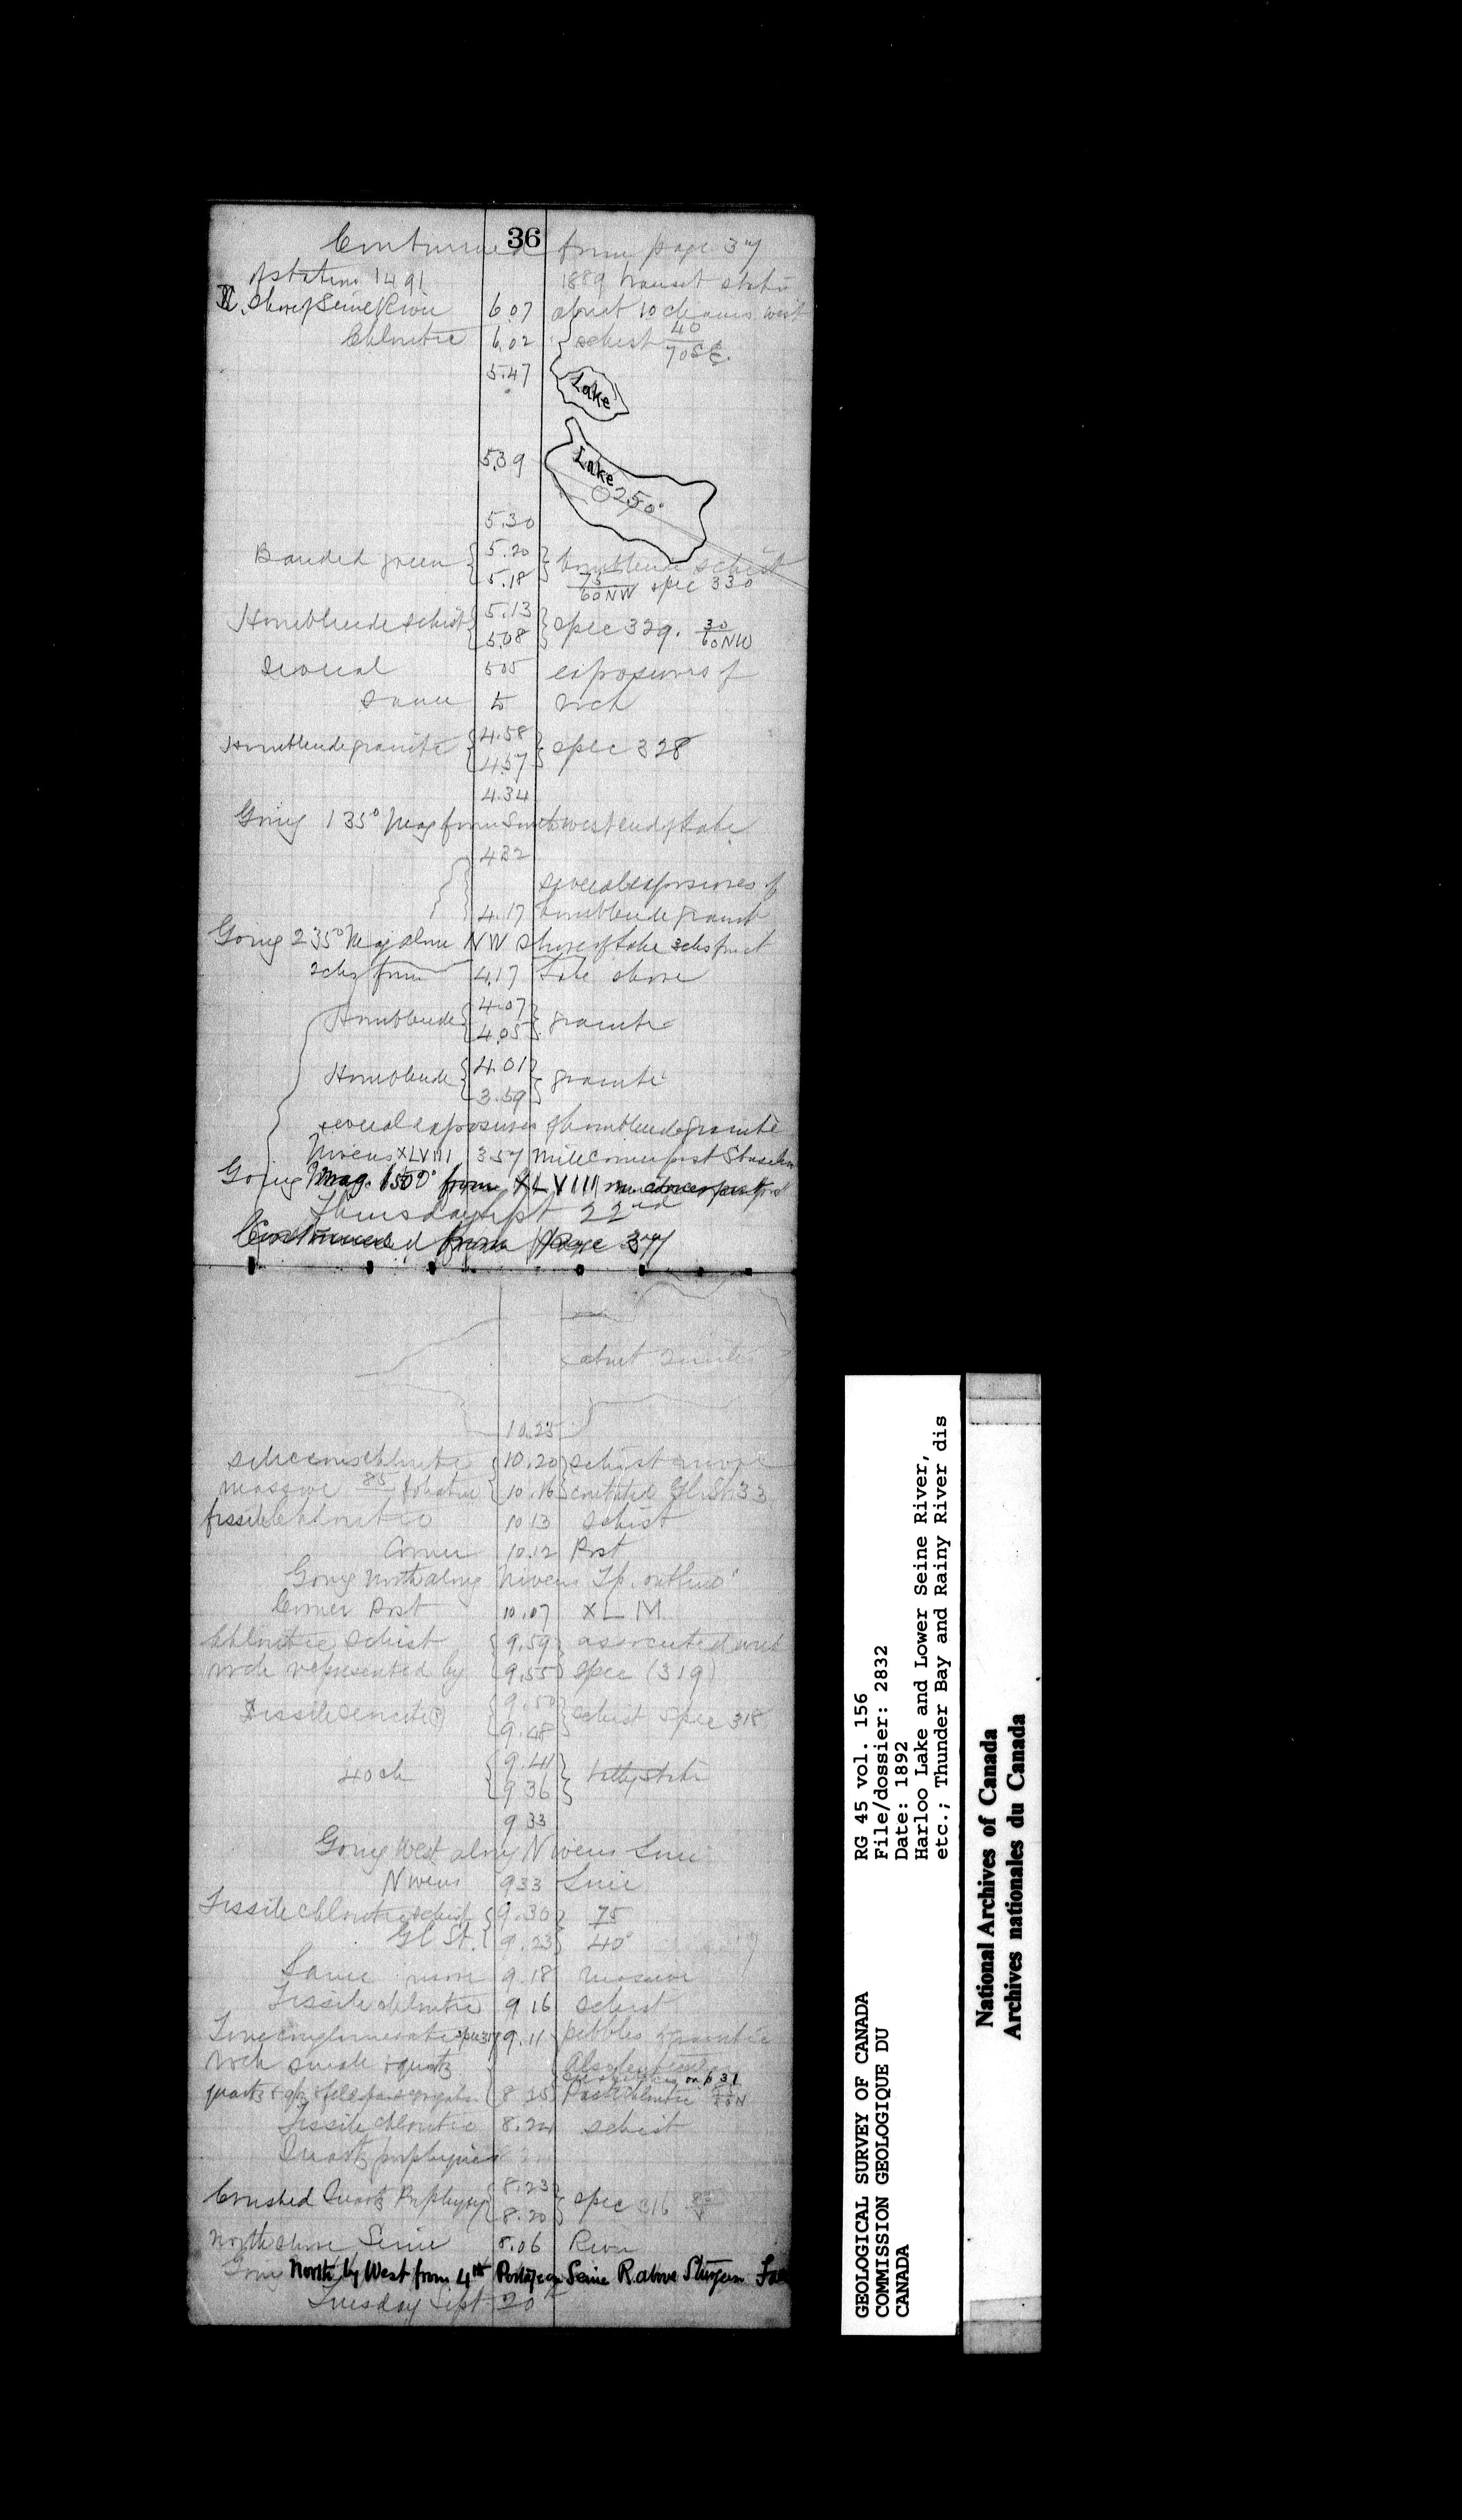 36
Continued from page 37
of station 1491 1889 transit station
N. Shore of Seine River 6.07 about 10 chains west
Chloritic 6.02 schist 40/70SE.
5.47 Lake
5.39 Lake
250°
5.30
Banded green 5.20 hornblende schist
5.18 75/60NW spec 330
Hornblende schist 5.13
5.08 spec 329. 30/60NW
several 505 exposures of
same 5 rock
Hornblende granite 4.58 spec 328
4.57
4.34
Going 135° Mag from Southwest end of Lake
432
several exposures of
4.17 hornblende granite
Going 235° Mag along NW Shore of Lake 3chs from it
2chs from 4.17 Lake shore
Hornblende 4.07 granite
4.05
Hornblende 4.01 granite
3.59
several exposures of hornblende granite
Nivens XLVIII 3.57 mile corner post S
Going Mag. 150° from XLVIII
Thursday Sept 22nd
Continued from Page 37
about
10.25
10.20 schist more
massive 85 10.16 Gl. St. 33
fissile Chloritic 10 13 schist
Corner 10.12 Post
Going North along Nivens Tp. outline
Corner Post 10.07 XLM
Chloritic schist 9.59 associated with
rock represented by 9.55 spec (319)
Fissile sericite 9.50 schist Spec 318
9.48
40 ch 9.41
9 36
9 33
Going West along Nivens Line
Nivens 933 Line
Fissile chloritic schist 9.30 75
Gl St. 9.23 40°
Same more 9.18 massive
Fissile chloritic 9 16 schist
conglomerate spec 317 9.11 pebbles granitic
rock small quartz
on p 31
8 35 chloritic
Fissile chloritic 8.24 schist
Quartz porphyries
Crushed Quartz Porphyry 8.23 spec 316
8.20
North shore Seine 8.06 River
Going North by West from 4th Portage on Seine R. above Sturgeon Falls
Tuesday Sept. 20th
GEOLOGICAL SURVEY OF CANADA
COMMISSION GEOLOGIQUE DU
CANADA
RG 45 vol. 156
File/dossier: 2832
Date: 1892
Harloo Lake and Lower Seine River,
etc.; Thunder Bay and Rainy River dis
National Archives of Canada
Archives nationales du Canada